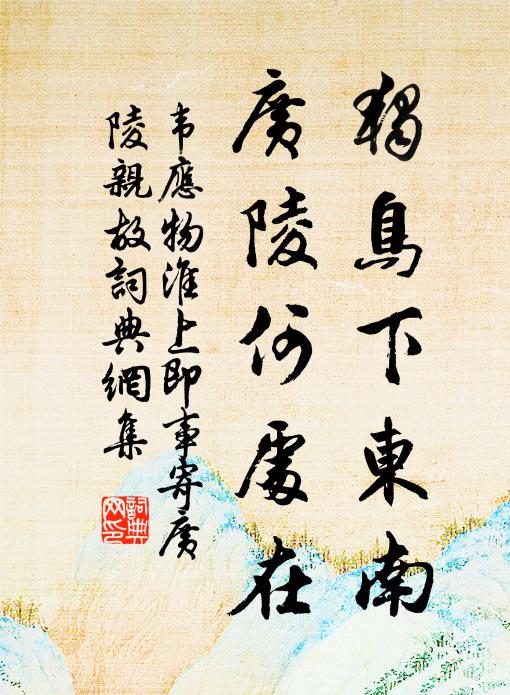 獨鳥下東南
廣陵何處在
韦應物淮上即事寄廣
陵親故詞典網集
詞典
网印